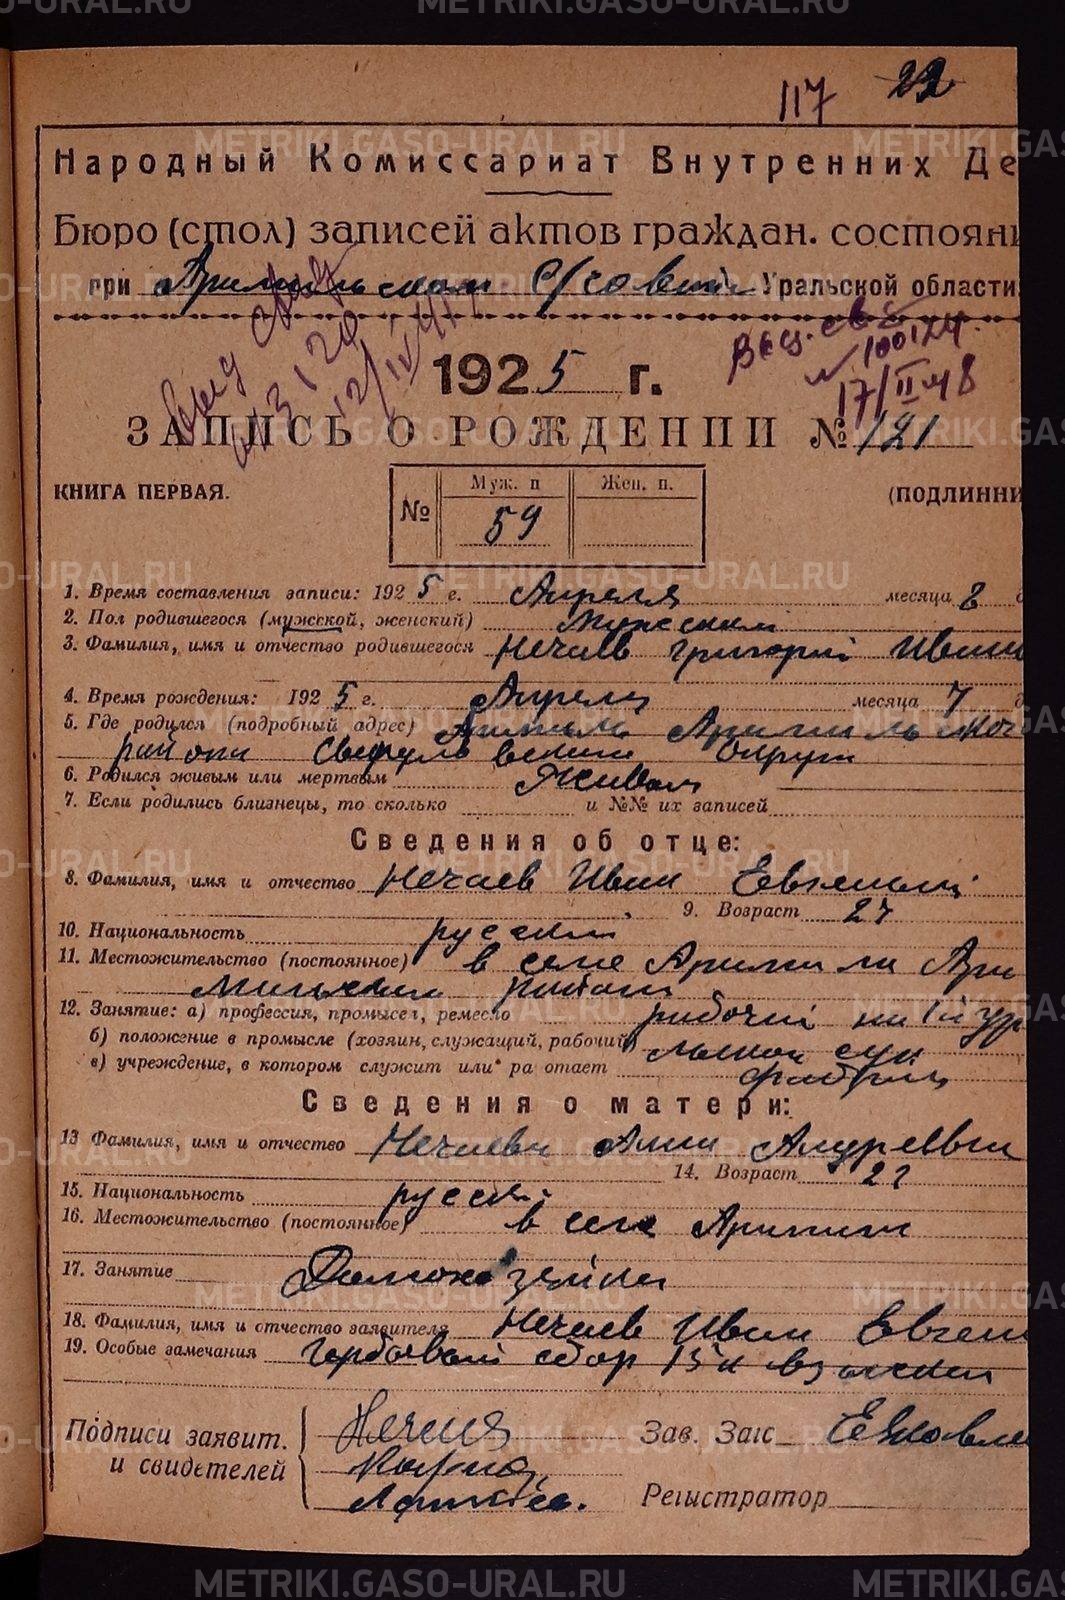 117 22
Народный Комиссариат Внутренних Де
Бюро (стол) записей актов граждан. состояни
при Арамильском С/совете Уральской области.
1925 г.
17/II 48
ЗАПИСЬ О РОЖДЕНИИ № 121
КНИГА ПЕРВАЯ.
(ПОДЛИННИ
№ Муж. п Жен. п.
59
1. Время составления записи: 1925 г. Апреля месяца 8 д
2. Пол родившегося (мужской, женский) Мужской
3. Фамилия, имя и отчество родившегося Нечаев Григорий Иван
4. Время рождения: 1925 г. Апреля месяца 7 д
5. Где родился (подробный адрес) Арамиль Арамильског
района Свердловского Округа
6. Родился живым или мертвым Живым
7. Если родились близнецы, то сколько и №№ их записей
Сведения об отце:
8. Фамилия, имя и отчество Нечаев Иван
9. Возраст 27
10. Национальность русский
11. Местожительство (постоянное) в селе Арамили Ара
мильского района
12. Занятие: а) профессия, промысел, ремесло рабочий на
б) положение в промысле (хозяин, служащий, рабочий) сук
в) учреждение, в котором служит или ра отает фабрик
Сведения о матери:
13 Фамилия, имя и отчество Нечаева Анна Андреевна
14. Возраст
15. Национальность русск.
16. Местожительство (постоянное) в селе Арамили
17. Занятие Домохозяйка
18. Фамилия, имя и отчество заявителя Нечаев Иван Евген
19. Особые замечания Гербовый сбор 15 к взыскан
Подписи заявит. и свидетелей
Зав. Загс
Регистратор
METRIKI.GASO-URAL.RU